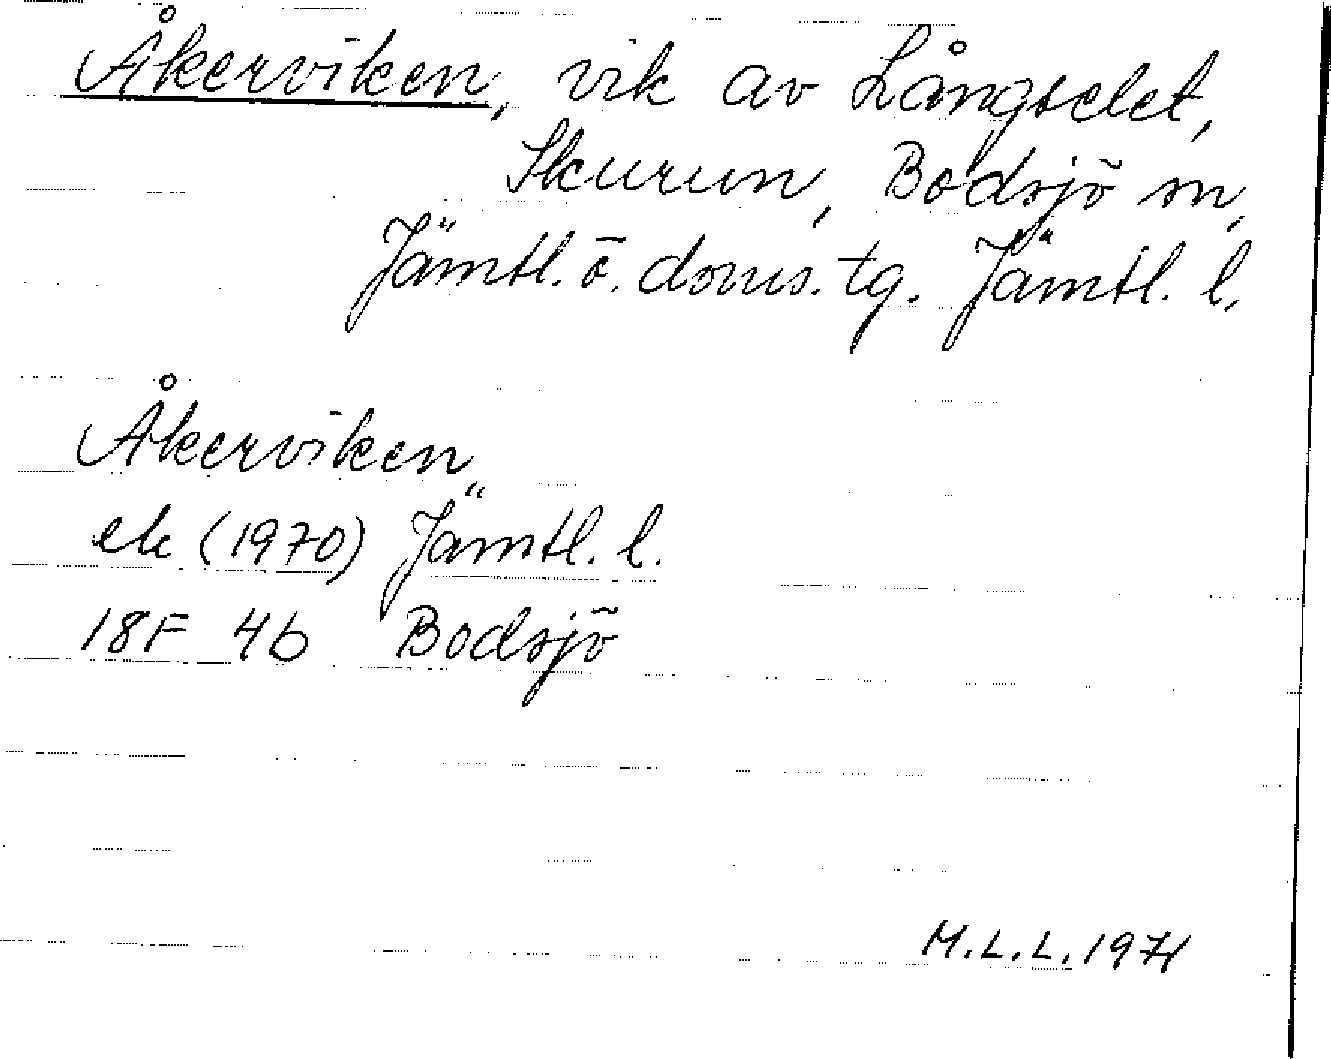 Åkerviken, vik av Långselet,
Skurun, Bodsjö sn,
Jämtl. ö. doms. tg. Jämtl. l.
Åkerviken
ek (1970) Jämtl. l.
18F 4b Bodsjö
M.L.L. 1971